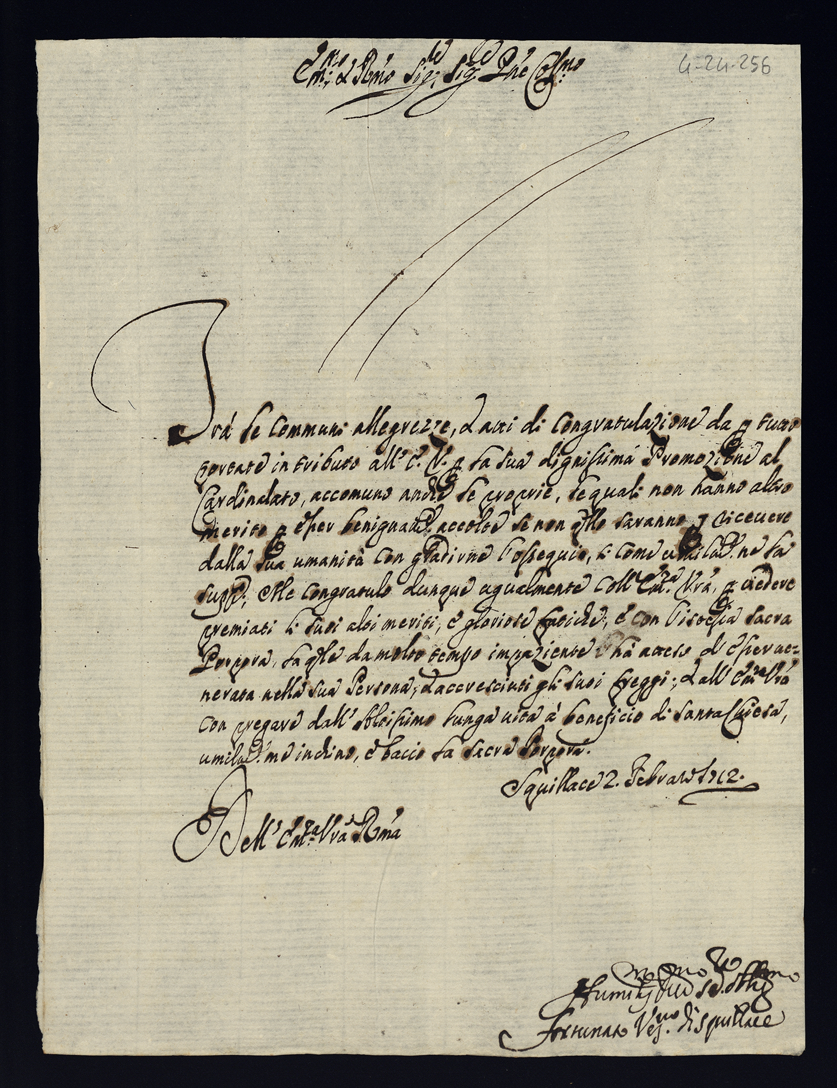 Em.mo e Rmo Sig.re Sig.re Pne Col.mo
4-24-256
Trà le communi allegrezze, e atti di congratulazione da p tutto
portate in tributo all' E. V. p la sua dignissima Promozione al
Cardinalato, accomuno anche le proprie, le quali non hanno altro
merito p esser benignam.te accolte se non q̃llo saranno p ricevere
dalla sua umanità con gradirne l'ossequio, si come umilm.te ne la
supp.co; Me congratulo dunque ugualmente coll' Em.za Vrã, p vedere
premiati li suoi alti meriti, e gloriose fatiche, e con l'istessa sacra
Porpora, la q̃le da molto tempo impaziente hà atteso d'esser ve-
nerata nella sua Persona, e accresciuti gli suoi freggi; e all' Em.za Vrã
con pregare dall' Altissimo lunga vita à beneficio di Santa Chiesa,
umilm.te me inchino, e baccio la sacra Porpora.
Squillace 2. Febraro 1712.
Dell' Em.za Vrã Rma
Humiliss.mo Dev.mo s.re obblig.mo
Fortunato Ves.vo di Squillace